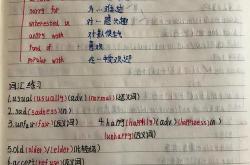 sorry for 对…难过
interested in 对…感兴趣
angry with 对…生气
fond of 喜欢
popular with 在…受欢迎
词汇练习
1.usual (usually)(adv)(normal)(近义词)
2.sad (sadness)(n)
3.unfair (fair)(反义词) 4.happy (happily)(adv)(happiness)(n)
unhappy (反义词)
5.old (older)/(elder)比较级
6.accept (refuse)(反义词)